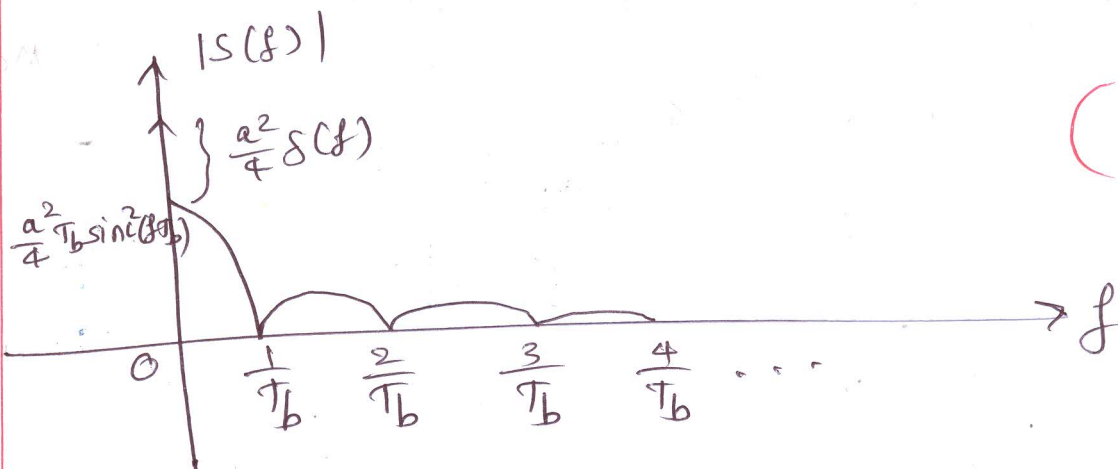 |S(f)|
a²/4 δ(f)
a²/4 T_b sinc²(fT_b)
f
0
1/T_b 2/T_b 3/T_b 4/T_b ...